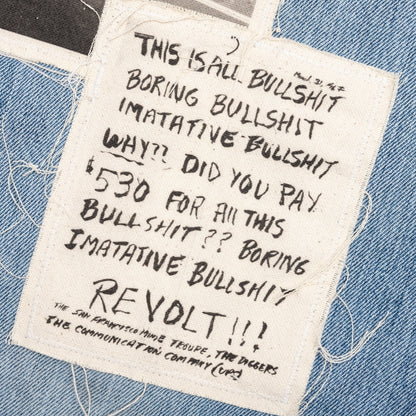 THIS IS ALL BULLSHIT
BORING BULLSHIT
IMATATIVE BULLSHIT
WHY?! DID YOU PAY
$530 FOR All THIS
BULLSHIT?? BORING
IMATATIVE BULLSHIT
REVOLT!!!
THE SAN FRANCISCO MIME TROUPE, THE DIGGERS
THE COMMUNICATION COMPANY (UPS)